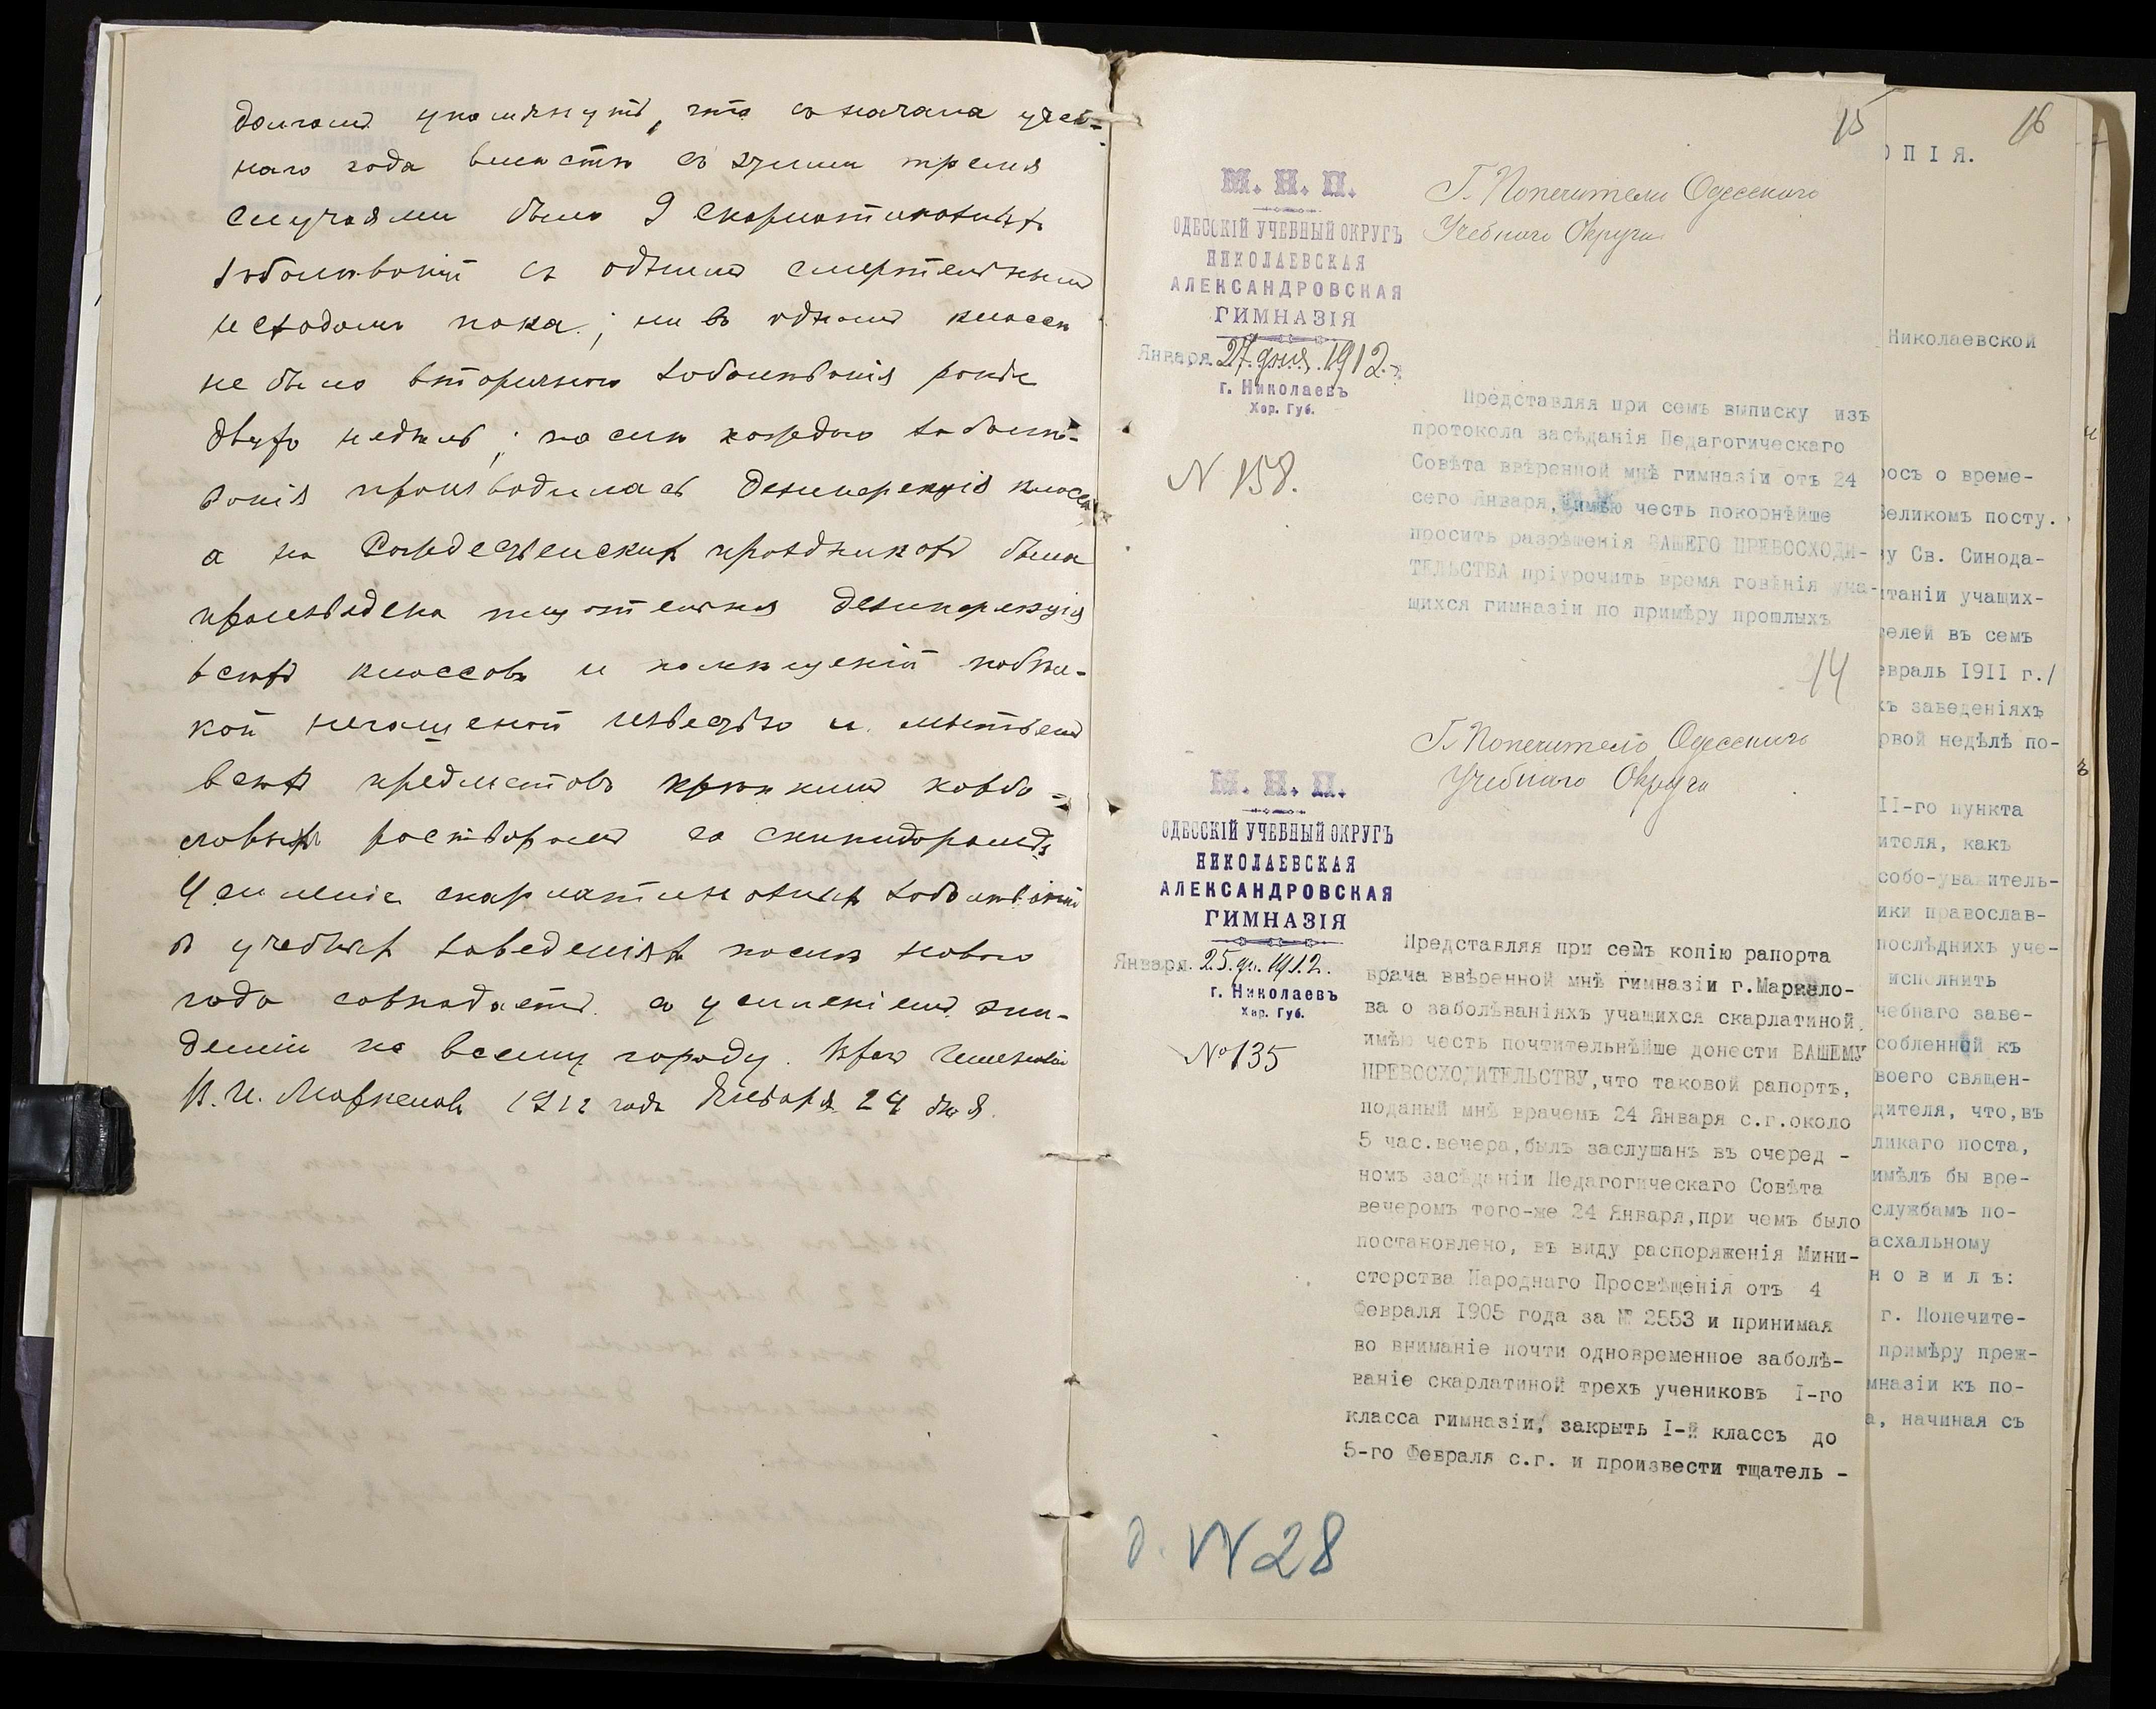 долгомъ упомянуть, что съ начала учеб-
наго года вместѣ съ этими тремя
случаями было 9 скарлатинозныхъ
заболѣваній съ однимъ смертельнымъ
исходомъ пока; ни въ одномъ классѣ
не было вторичнаго заболѣванія ранѣе
двухъ недѣль; послѣ каждаго заболѣ-
ванія производилась дезинфекція класса,
а на Рождественскихъ праздникахъ была
произведена тщательная дезинфекція
всѣхъ классовъ и помѣщеній побѣл-
кой негашеной известью и мытьемъ
всѣхъ предметовъ крѣпкимъ карбо-
ловымъ растворомъ со скипидаромъ.
Усиленіе скарлатинозныхъ заболѣваній
въ учебныхъ заведеніяхъ послѣ новаго
года совпадаетъ съ усиленіемъ эпи-
деміи по всему городу. Врачъ Гимназіи
И. Маркеловъ 1912 года Января 24 дня.
15
М. Н. П.
ОДЕССКІЙ УЧЕБНЫЙ ОКРУГЪ
НИКОЛАЕВСКАЯ
АЛЕКСАНДРОВСКАЯ
ГИМНАЗІЯ
Января 27 дня 1912 г.
г. Николаевъ
Хер. Губ.
N 158.
Г. Попечителю Одесскаго
Учебнаго Округа
Представляя при семъ выписку изъ
протокола засѣданія Педагогическаго
Совѣта ввѣренной мнѣ гимназіи отъ 24
сего Января, имѣю честь покорнѣйше
просить разрѣшенія ВАШЕГО ПРЕВОСХОДИ-
ТЕЛЬСТВА пріурочить время говѣнія уча-
щихся гимназіи по примѣру прошлыхъ
14
М. Н. П.
ОДЕССКІЙ УЧЕБНЫЙ ОКРУГЪ
НИКОЛАЕВСКАЯ
АЛЕКСАНДРОВСКАЯ
ГИМНАЗІЯ
Января 25 дн. 1912.
г. Николаевъ
Хер. Губ.
№ 135
Г. Попечителю Одесскаго
Учебнаго Округа
Представляя при семъ копію рапорта
врача ввѣренной мнѣ гимназіи г.Маркело-
ва о заболѣваніяхъ учащихся скарлатиной,
имѣю честь почтительнѣйше донести ВАШЕМУ
ПРЕВОСХОДИТЕЛЬСТВУ,что таковой рапортъ,
поданый мнѣ врачемъ 24 Января с.г.около
5 час.вечера,былъ заслушанъ въ очеред -
номъ засѣданіи Педагогическаго Совѣта
вечеромъ того-же 24 Января,при чемъ было
постановлено, въ виду распоряженія Мини-
стерства Народнаго Просвѣщенія отъ 4
Февраля 1905 года за № 2553 и принимая
во вниманіе почти одновременное заболѣ-
ваніе скарлатиной трехъ учениковъ I-го
класса гимназіи, закрыть I-й классъ до
5-го Февраля с.г. и произвести тщатель -
д. N 28
16
ОПІЯ.
Николаевской
росъ о време-
Великомъ посту.
зу Св. Синода-
итаніи учащих-
телей въ семъ
евраль 1911 г./
хъ заведеніяхъ
рвой недѣлѣ по-
II-го пункта
ителя, какъ
собо-уважитель-
ики православ-
послѣднихъ уче-
исполнить
чебнаго заве-
собленной къ
воего священ-
дителя, что,въ
ликаго поста,
имѣлъ бы вре-
службамъ по-
асхальному
н о в и л ъ:
г. Попечите-
примѣру преж-
мназіи къ по-
а, начиная съ